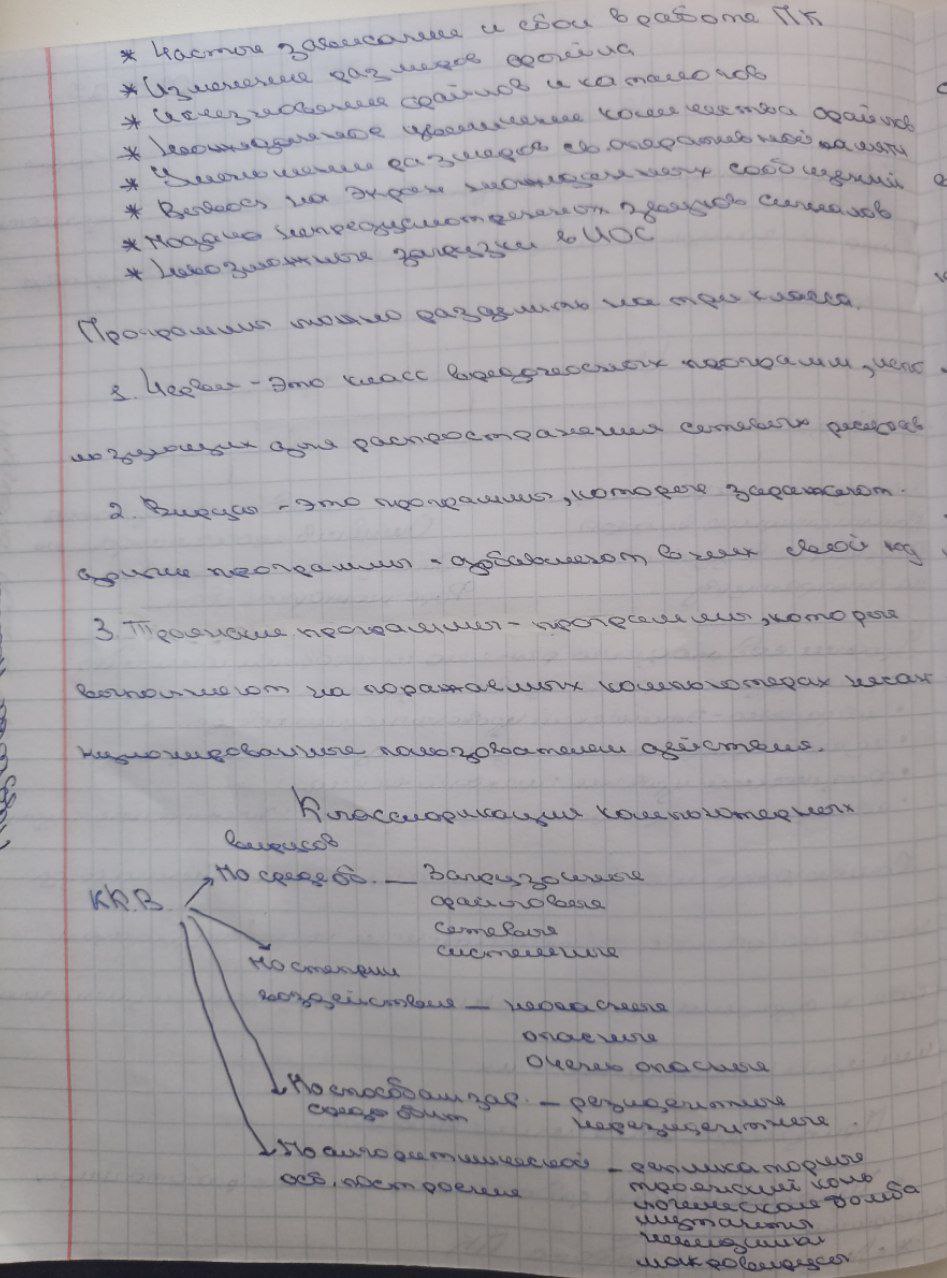 * Частые зависание и сбои в работе ПК
* Изменение размеров файла
* Исчезновение файлов и каталогов
* Неожиданное увеличение количества файлов
* Уменьшение размеров св. оперативной памяти
* Вывось на экран неожиданных сообщений
* Подача непредусмотренных звуков сигналов
* Невозможные загрузки в ЦОС
Программы можно разделить на три класса.
1. Черви - это класс вредоносных программ, испо
льзующих для распространения сетевых ресурсов
2. Вирусы - это программы, которые заражают
другие программы - добавляют в них свой код
3. Троянские программы - программы, которые
выполняют на поражаемых компьютерах несан
кционированные ползователем действия.
Классификация компьютерных
вирусов
КК.В. По средеоб. — Загрузочные
файловые
сетевые
системные
По степени
воздействия — неопасные
опасные
очень опасные
По способам зар. — резидентные
среды обит нерезидентные.
По алгоретмической — репликаторные
осб. построения троянский конь
логическая бомба
мутанты
невидимки
макровирусы